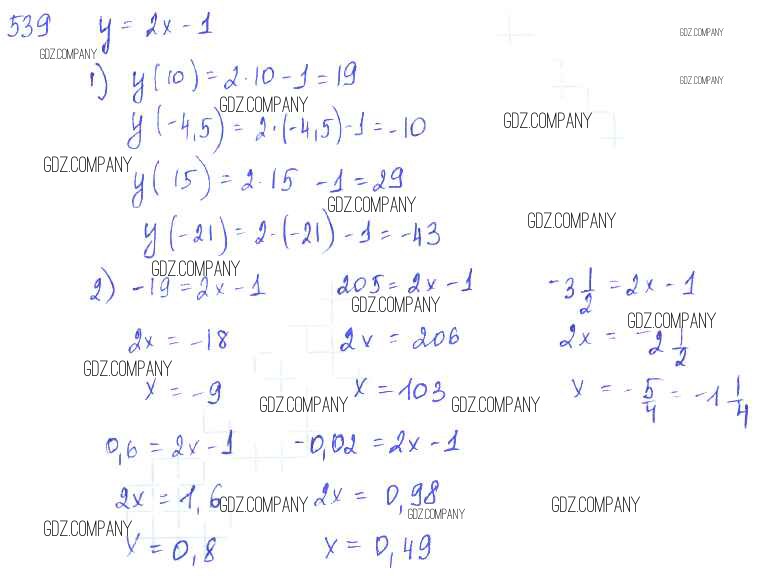 539 y = 2x - 1
GDZ.COMPANY
GDZ.COMPANY
GDZ.COMPANY
1) y(10) = 2·10 - 1 = 19
GDZ.COMPANY
GDZ.COMPANY
y(-4,5) = 2·(-4,5) - 1 = -10
GDZ.COMPANY
y(15) = 2·15 - 1 = 29
GDZ.COMPANY
GDZ.COMPANY
y(-21) = 2·(-21) - 1 = -43
GDZ.COMPANY
2) -19 = 2x - 1 205 = 2x - 1 -3 1/2 = 2x - 1
GDZ.COMPANY
GDZ.COMPANY
2x = -18 2x = 206 2x = -2 1/2
GDZ.COMPANY
x = -9 x = 103 x = -5/4 = -1 1/4
GDZ.COMPANY GDZ.COMPANY
0,6 = 2x - 1 -0,02 = 2x - 1
2x = 1,6 2x = 0,98
GDZ.COMPANY GDZ.COMPANY
GDZ.COMPANY
GDZ.COMPANY
x = 0,8 x = 0,49